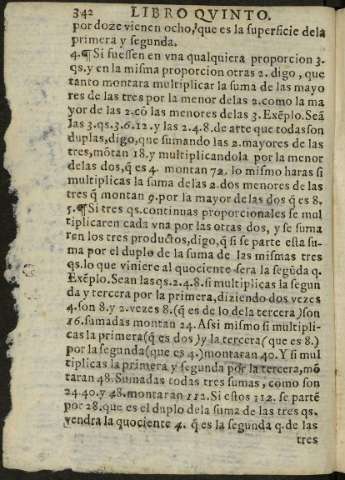 342 LIBRO QVINTO.
por doze vienen ocho, que es la superficie dela
primera y segunda.
4. ¶ Si fuessen en vna qualquiera proporcion 3.
qs. y en la misma proporcion otras 2. digo, que
tanto montara multiplicar la suma de las mayo
res de las tres por la menor delas 2. como la ma
yor de las 2. cō las menores de las 3. Exēplo. Seā
las 3. qs. 3. 6. 12. y las 2. 4. 8. de arte que todas son
duplas, digo, que sumando las 2. mayores de las
tres, mōtan 18. y multiplicandola por la menor
delas dos, q̄ es 4. montan 72. lo mismo haras si
multiplicas la suma delas 2. dos menores de las
tres q̄ montan 9. por la mayor delas dos q̄ es 8.
5. ¶ Si tres qs. continuas proporcionales se mul
tiplicaren cada vna por las otras dos, y se suma
ren los tres productos, digo, q̄ si se parte esta su-
ma por el duplo de la suma de las mismas tres
qs. lo que viniere al quociente sera la segūda q.
Exēplo. Sean las qs. 2. 4. 8. si multiplicas la segun
da y tercera por la primera, diziendo dos vezes
4. son 8. y 2. vezes 8. (q̄ es de lo dela tercera) son
16. sumadas montan 24. Assi mismo si multipli-
cas la primera (q̄ es dos) y la tercera (que es 8.)
por la segunda (que es 4.) montaran 40. Y si mul
tiplicas la primera y segunda por la tercera, mō
taran 48. Sumadas todas tres sumas, como son
24. 40. y 48. montaran 112. Si estos 112. se partē
por 28. que es el duplo dela suma de las tres qs.
vendra la quociente 4. q̄ es la segunda q. de las
tres